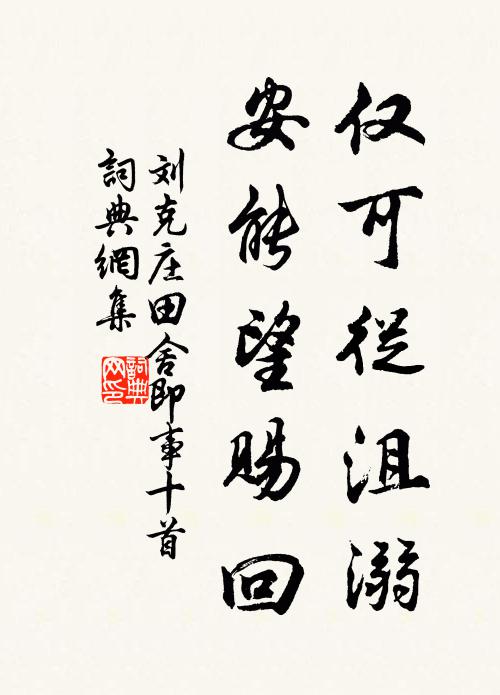 仅可從沮溺
安能望賜回
刘克庄田舍即事十首
詞典網集
詞典网印